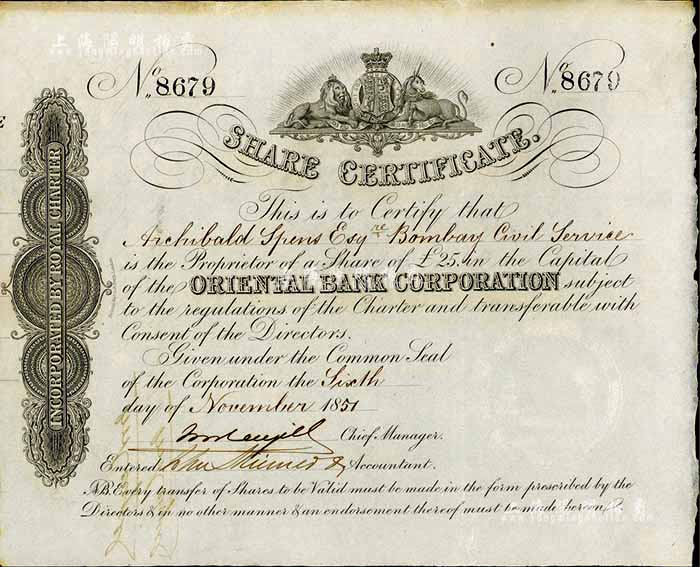 上海陽明拍賣
No. 8679
No. 8679
SHARE CERTIFICATE.
INCORPORATED BY ROYAL CHARTER
This is to Certify that
Archibald Spens Esqre Bombay Civil Service
is the Proprietor of a Share of £25. in the Capital
of the ORIENTAL BANK CORPORATION subject
to the regulations of the Charter and transferable with
Consent of the Directors.
Given under the Common Seal
of the Corporation the Sixth
day of November 1851
Chief Manager.
Entered Accountant.
NB. Every transfer of Shares to be Valid must be made in the form prescribed by the
Directors & in no other manner & an endorsement thereof must be made hereon.